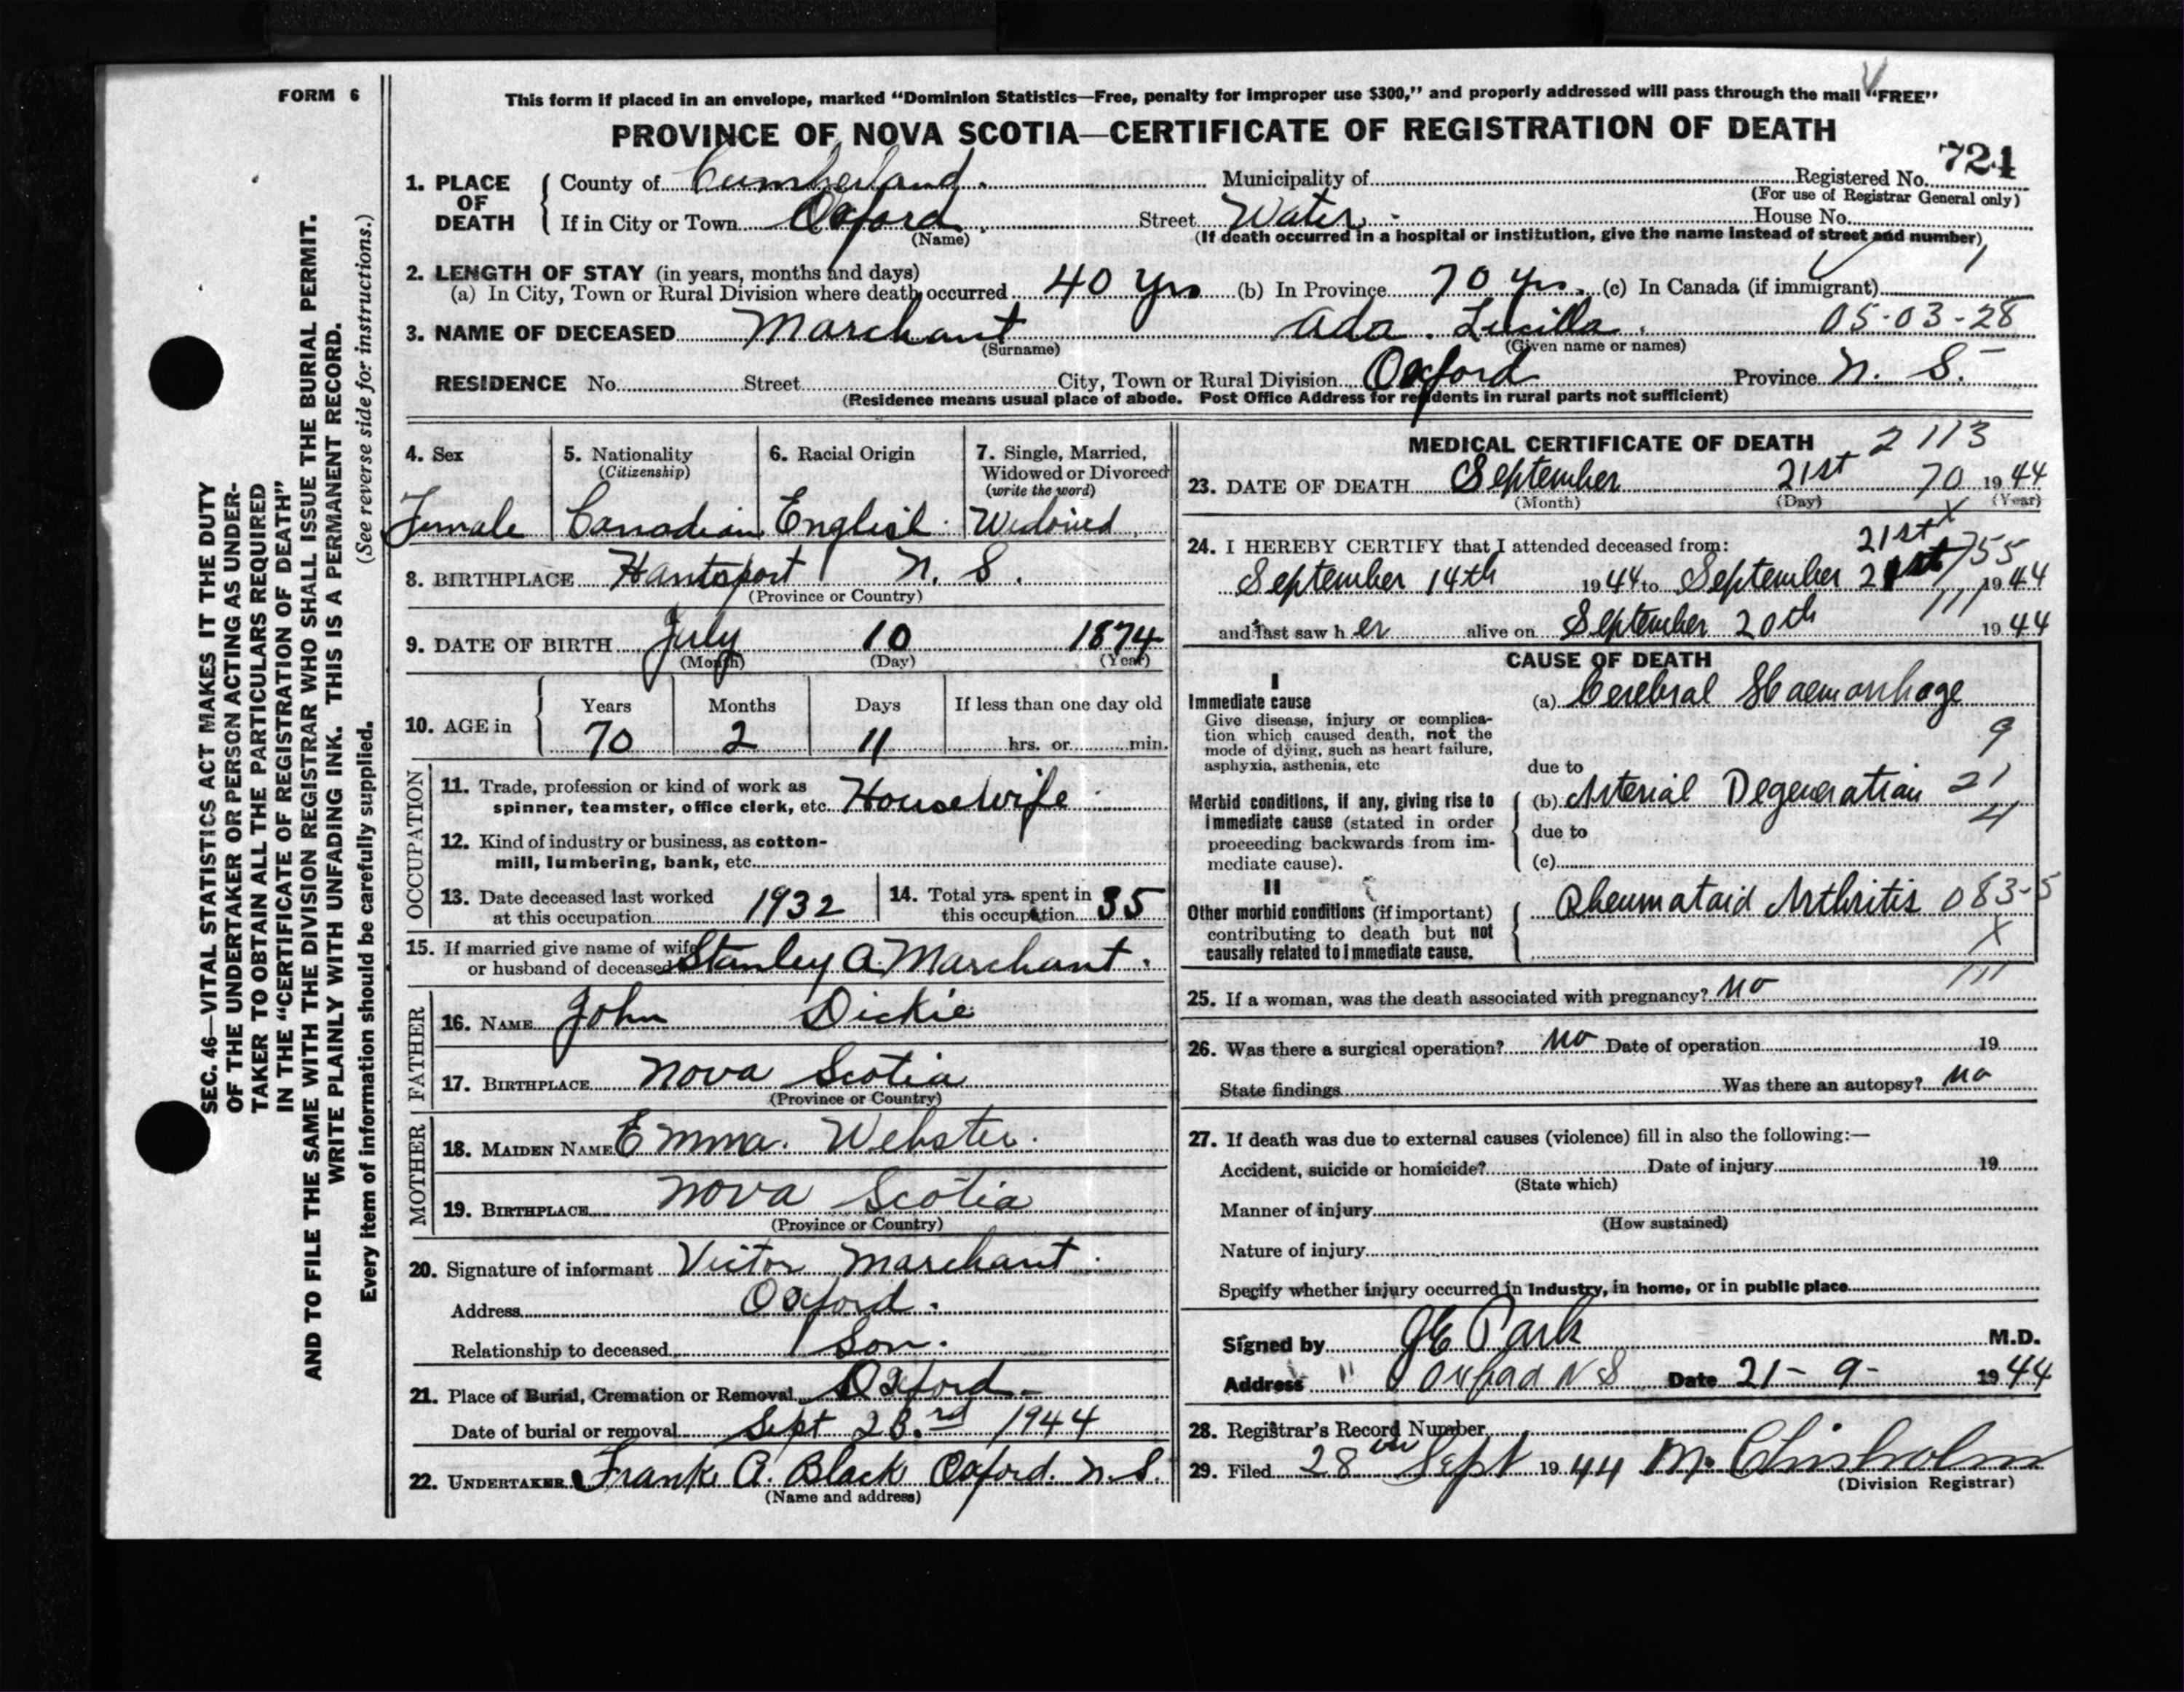 FORM 6
This form if placed in an envelope, marked "Dominion Statistics—Free, penalty for improper use $300," and properly addressed will pass through the mail "FREE"
PROVINCE OF NOVA SCOTIA—CERTIFICATE OF REGISTRATION OF DEATH
724
1. PLACE OF DEATH
County of Cumberland. Municipality of Registered No.
(For use of Registrar General only)
If in City or Town Oxford Street Water House No.
(Name) (If death occurred in a hospital or institution, give the name instead of street and number)
2. LENGTH OF STAY (in years, months and days)
(a) In City, Town or Rural Division where death occurred 40 yrs (b) In Province 70 yrs. (c) In Canada (if immigrant)
3. NAME OF DECEASED Marchant Ada. Lucilla. 05-03-28
(Surname) (Given name or names)
RESIDENCE No. Street City, Town or Rural Division Oxford Province N. S.
(Residence means usual place of abode. Post Office Address for residents in rural parts not sufficient)
4. Sex
Female
5. Nationality
(Citizenship)
Canadian
6. Racial Origin
English
7. Single, Married, Widowed or Divorced
(write the word)
Widowed
8. BIRTHPLACE Hantsport N. S.
(Province or Country)
9. DATE OF BIRTH July 10 1874
(Month) (Day) (Year)
10. AGE in
Years Months Days If less than one day old
70 2 11 hrs. or min.
OCCUPATION
11. Trade, profession or kind of work as
spinner, teamster, office clerk, etc. Housewife
12. Kind of industry or business, as cotton-
mill, lumbering, bank, etc.
13. Date deceased last worked
at this occupation 1932
14. Total yrs. spent in
this occupation 35
15. If married give name of wife
or husband of deceased Stanley A. Marchant.
FATHER
16. NAME John Dickie
17. BIRTHPLACE Nova Scotia
(Province or Country)
MOTHER
18. MAIDEN NAME Emma. Webster.
19. BIRTHPLACE Nova Scotia
(Province or Country)
20. Signature of informant Victor Marchant.
Address Oxford.
Relationship to deceased Son.
21. Place of Burial, Cremation or Removal Oxford
Date of burial or removal Sept 23.rd 1944
22. UNDERTAKER Frank A. Black Oxford. N.S.
(Name and address)
MEDICAL CERTIFICATE OF DEATH 2113
23. DATE OF DEATH September 21st 70 1944
(Month) (Day) (Year)
24. I HEREBY CERTIFY that I attended deceased from: 21st X
September 14th 1944 to September 21st 755 1944
and last saw her alive on September 20th 111 1944
CAUSE OF DEATH
I
Immediate cause
Give disease, injury or complica-
tion which caused death, not the
mode of dying, such as heart failure,
asphyxia, asthenia, etc
(a) Cerebral Haemorrhage
9
due to
Morbid conditions, if any, giving rise to
immediate cause (stated in order
proceeding backwards from im-
mediate cause).
(b) Arterial Degeneration 21
4
due to
(c)
II
Other morbid conditions (if important)
contributing to death but not
causally related to immediate cause.
Rheumataid Arthritis 083-5
X
111
25. If a woman, was the death associated with pregnancy? no
26. Was there a surgical operation? no Date of operation 19
State findings Was there an autopsy? no
27. If death was due to external causes (violence) fill in also the following:—
Accident, suicide or homicide? Date of injury 19
(State which)
Manner of injury
(How sustained)
Nature of injury
Specify whether injury occurred in industry, in home, or in public place
Signed by Park M.D.
Address " Oxford N S Date 21-9- 1944
28. Registrar's Record Number
29. Filed 28th Sept 1944 M. Chisholm
(Division Registrar)
SEC. 46—VITAL STATISTICS ACT MAKES IT THE DUTY
OF THE UNDERTAKER OR PERSON ACTING AS UNDER-
TAKER TO OBTAIN ALL THE PARTICULARS REQUIRED
IN THE "CERTIFICATE OF REGISTRATION OF DEATH"
AND TO FILE THE SAME WITH THE DIVISION REGISTRAR WHO SHALL ISSUE THE BURIAL PERMIT.
WRITE PLAINLY WITH UNFADING INK. THIS IS A PERMANENT RECORD.
Every item of information should be carefully supplied. (See reverse side for instructions.)